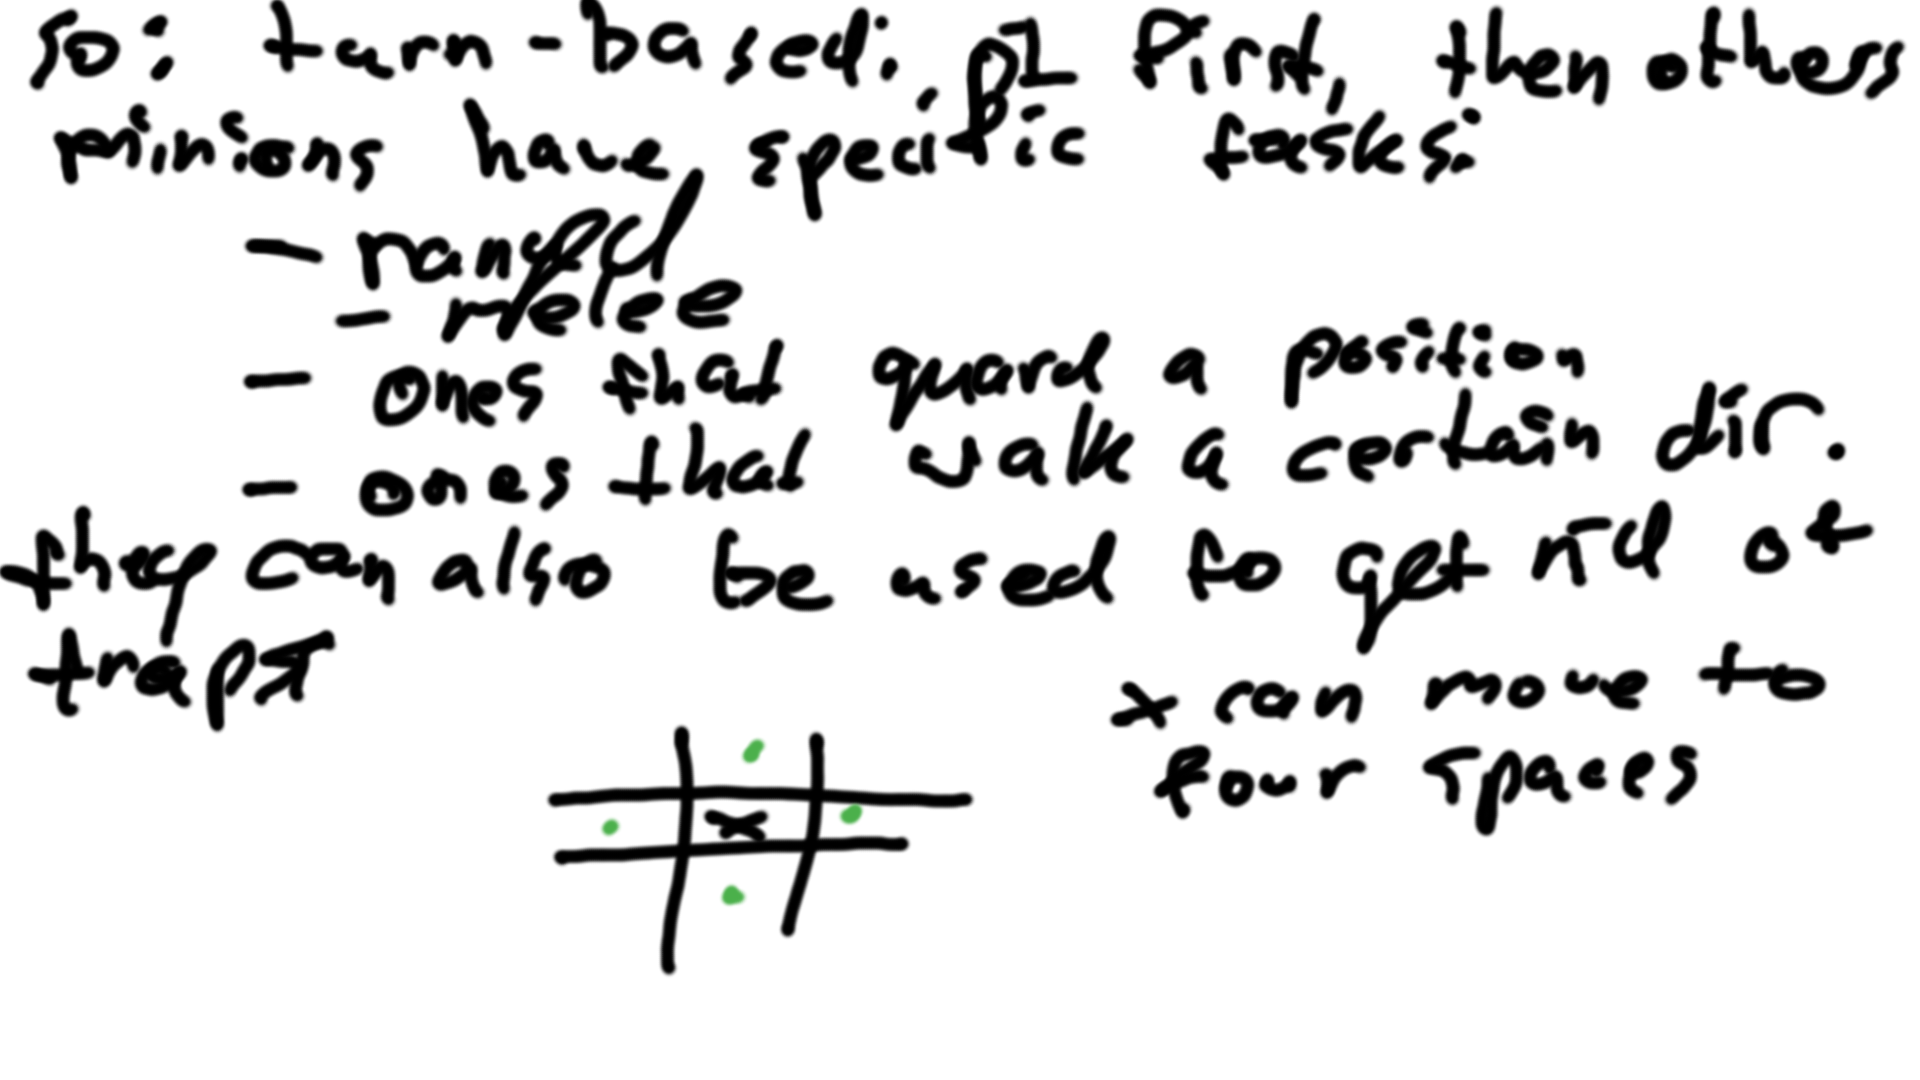 so: turn-based: p1 first, then others
minions have specific tasks:
- ranged
- melee
- ones that guard a position
- ones that walk a certain dir.
they can also be used to get rid of
traps
x can move to
four spaces
x